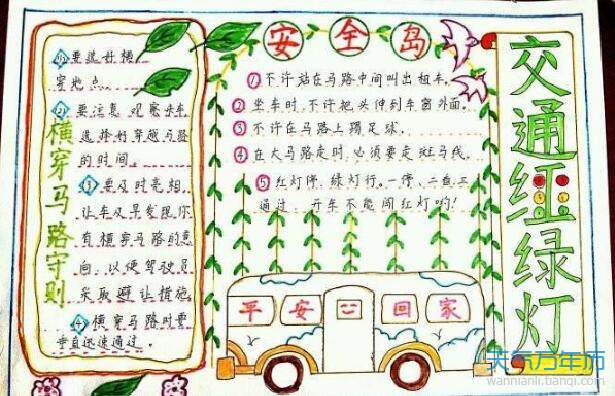 横穿马路守则
①要选好横
穿地点。
②要注意观察来车,
选择好穿越马路
的时间。
③要及时亮相,
让车及早发现你
有横穿马路的意
向,以便驾驶员
采取避让措施。
④横穿马路时要
垂直迅速通过。
安全岛
①不许站在马路中间叫出租车。
②坐车时,不许把头伸到车窗外面。
③不许在马路上踢足球。
④在大马路走时,必须要走斑马线。
⑤红灯停,绿灯行。一停,二看,三
通过,开车不能闯红灯哟!
平安回家
交通红绿灯
天气万年历
wannianli.tianqi.com